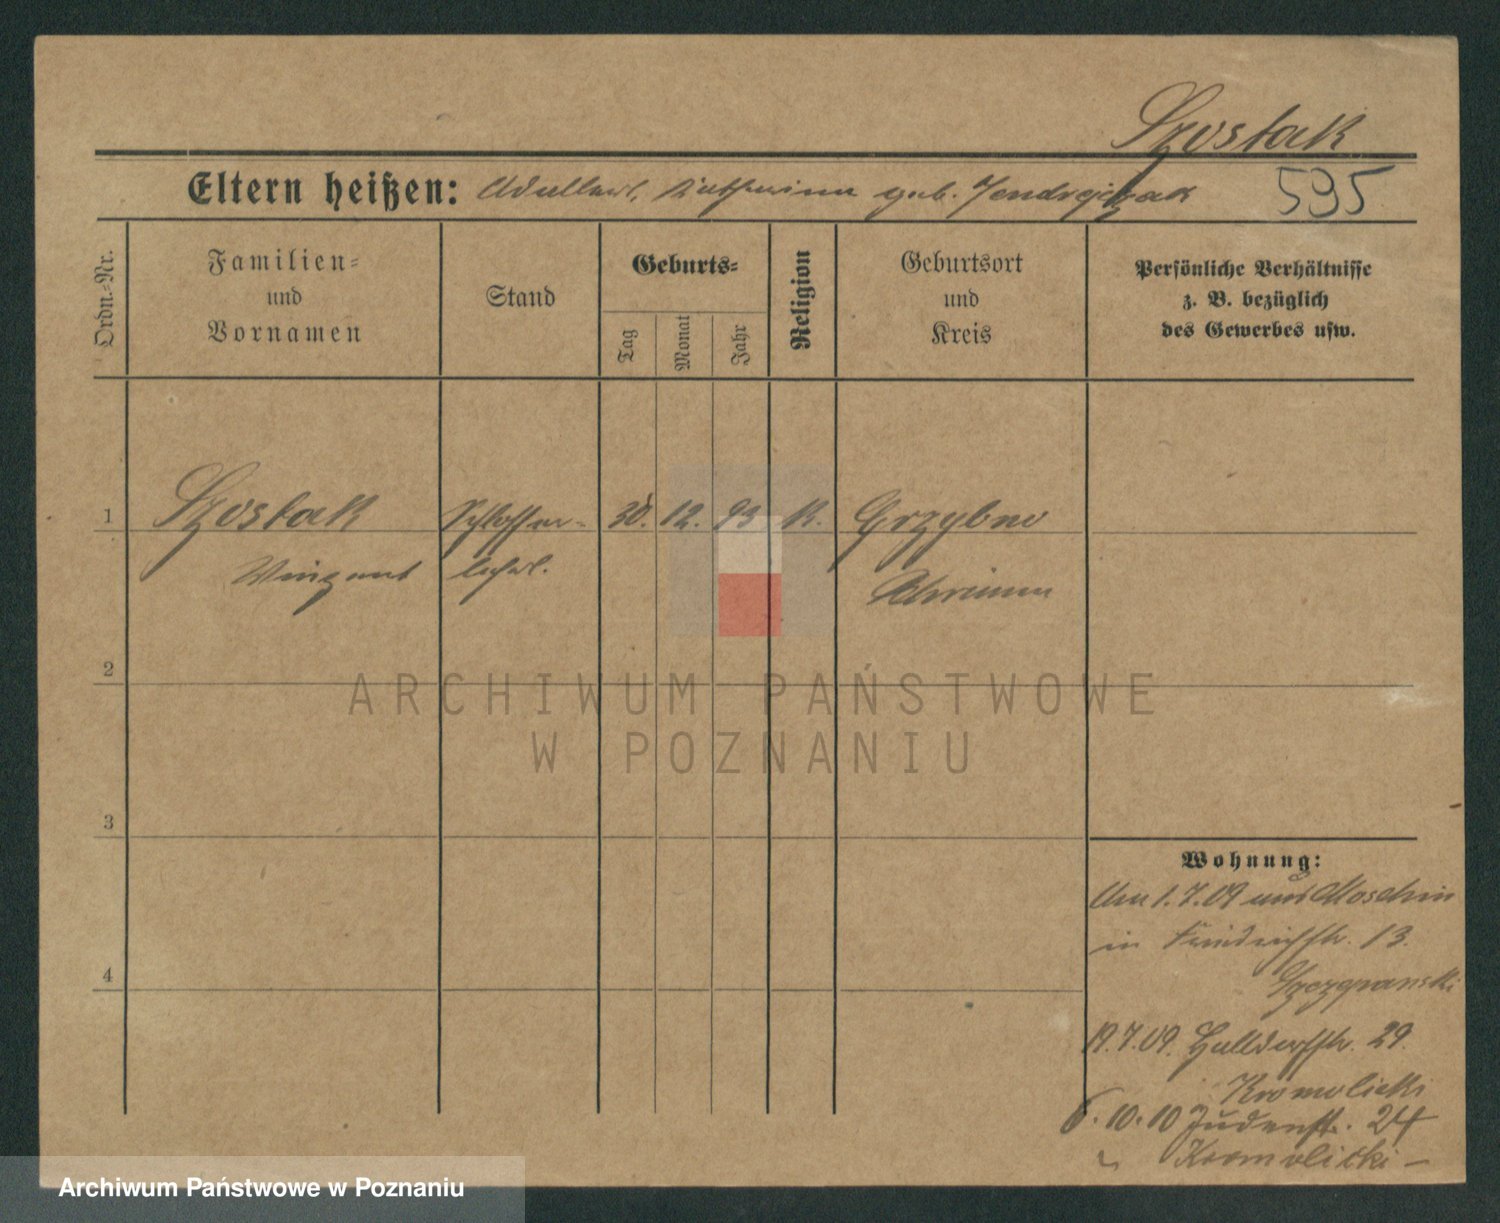 Szostak
Eltern heißen: Adalbert, Katharina geb. Jendrejczak 595
Ordn.-Nr.
Familien-
und
Vornamen
Stand
Geburts-
Tag
Monat
Jahr
Religion
Geburtsort
und
Kreis
Persönliche Verhältnisse
z. B. bezüglich
des Gewerbes usw.
1 Szostak Schlosser- 30. 12. 93 K. Grzybno
Vinzent lehrl. Schrimm
2
3
4
Wohnung:
Am 1.7.09 aus Moschin
in Friedrichstr. 13.
19.7.09. Halldorfstr. 29.
Kromolicki
6.10.10 Judenstr. 24
Kromolicki
ARCHIWUM PAŃSTWOWE
W POZNANIU
Archiwum Państwowe w Poznaniu